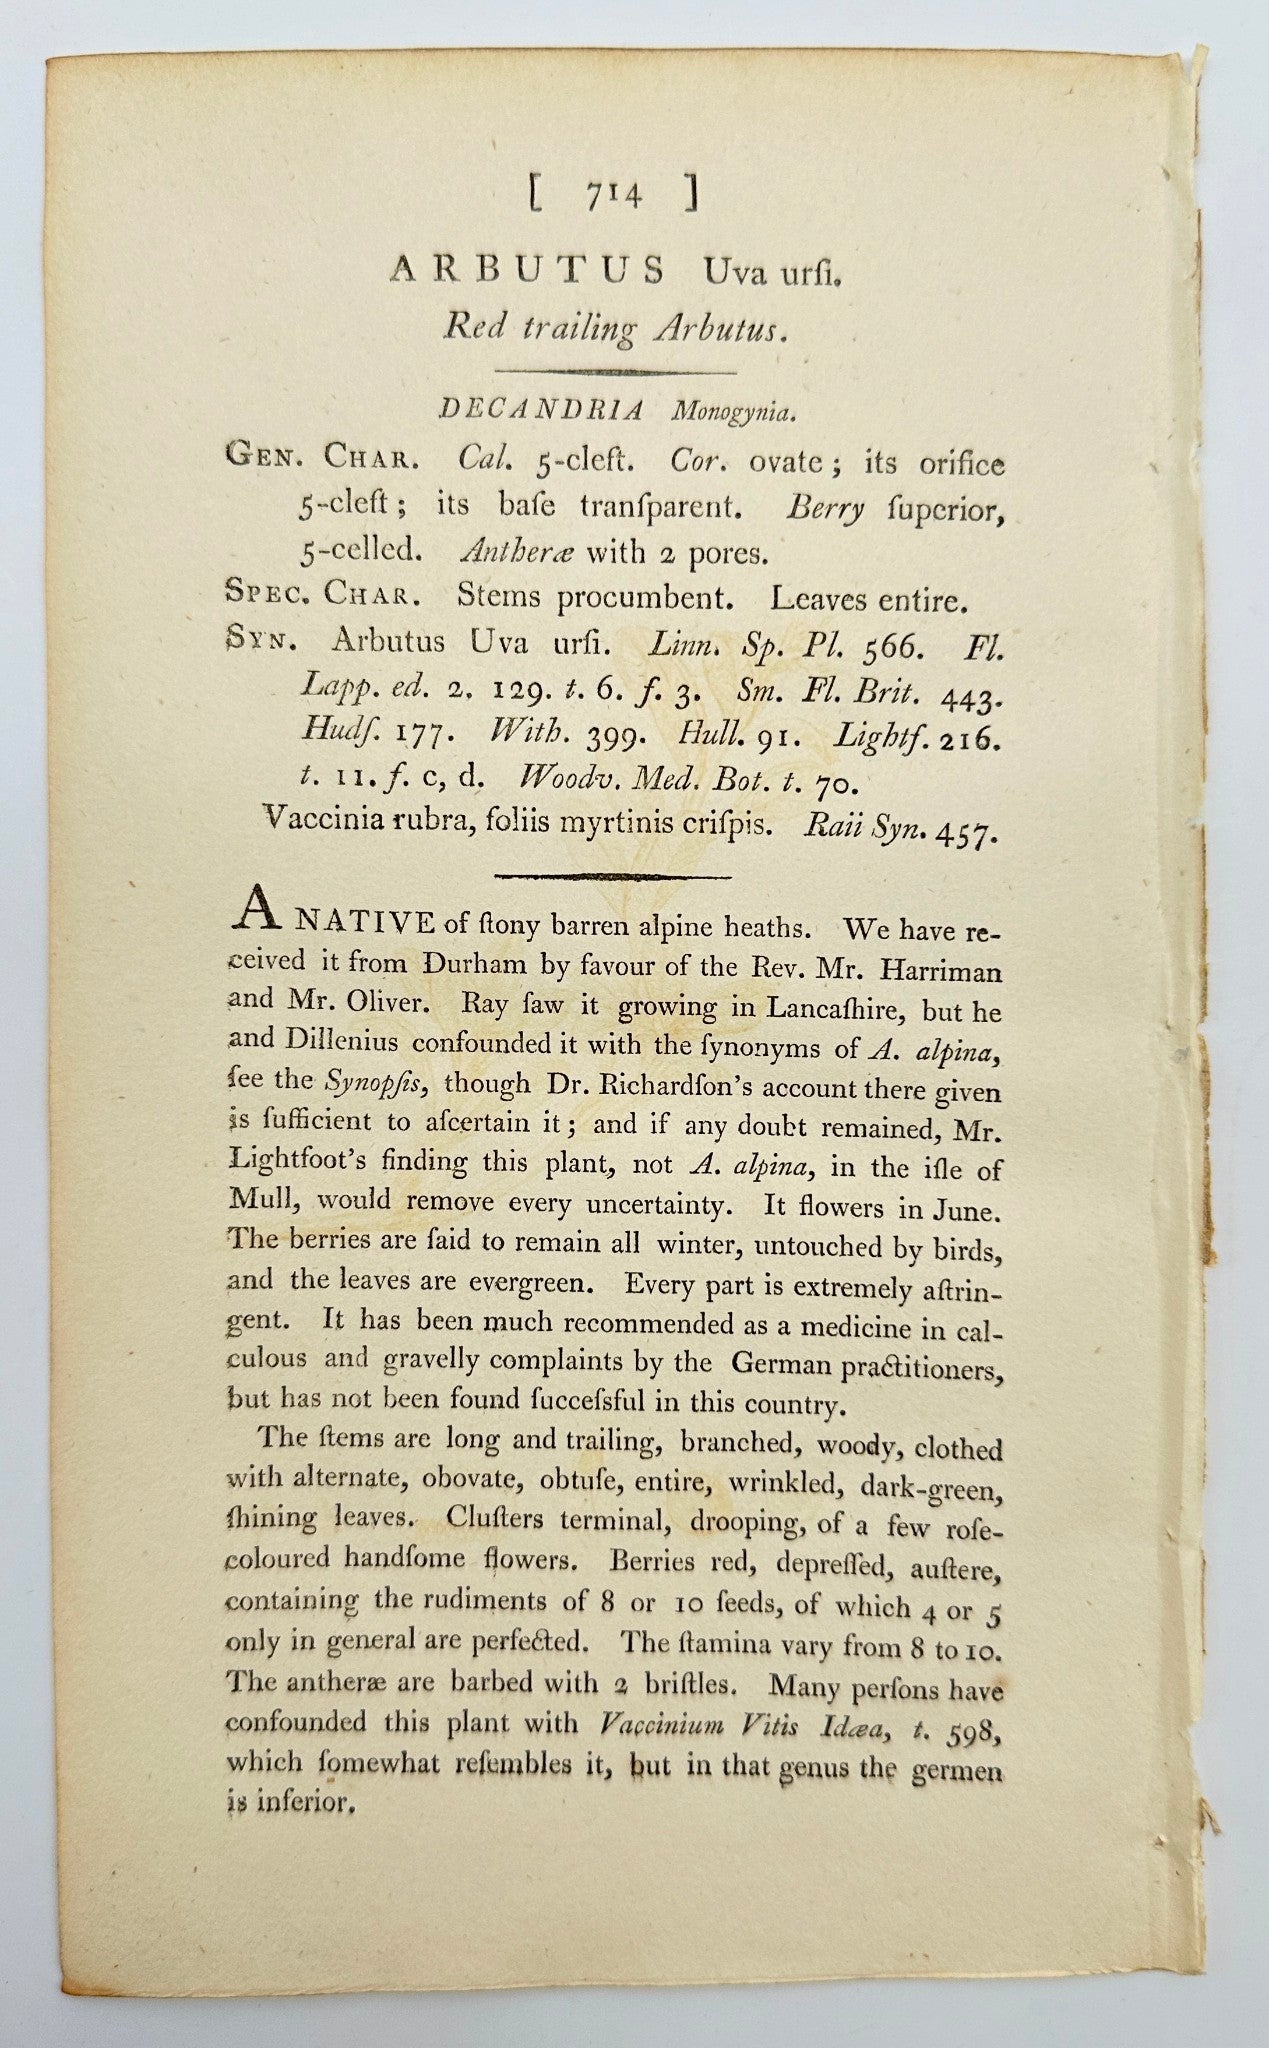 [ 714 ]
ARBUTUS Uva urſi.
Red trailing Arbutus.
DECANDRIA Monogynia.
GEN. CHAR. Cal. 5-cleft. Cor. ovate; its orifice
5-cleft; its baſe tranſparent. Berry ſuperior,
5-celled. Antheræ with 2 pores.
SPEC. CHAR. Stems procumbent. Leaves entire.
SYN. Arbutus Uva urſi. Linn. Sp. Pl. 566. Fl.
Lapp. ed. 2. 129. t. 6. f. 3. Sm. Fl. Brit. 443.
Hudſ. 177. With. 399. Hull. 91. Lightf. 216.
t. 11. f. c, d. Woodv. Med. Bot. t. 70.
Vaccinia rubra, foliis myrtinis criſpis. Raii Syn. 457.
A NATIVE of ſtony barren alpine heaths. We have re-
ceived it from Durham by favour of the Rev. Mr. Harriman
and Mr. Oliver. Ray ſaw it growing in Lancaſhire, but he
and Dillenius confounded it with the ſynonyms of A. alpina,
ſee the Synopſis, though Dr. Richardſon's account there given
is ſufficient to aſcertain it; and if any doubt remained, Mr.
Lightfoot's finding this plant, not A. alpina, in the iſle of
Mull, would remove every uncertainty. It flowers in June.
The berries are ſaid to remain all winter, untouched by birds,
and the leaves are evergreen. Every part is extremely aſtrin-
gent. It has been much recommended as a medicine in cal-
culous and gravelly complaints by the German practitioners,
but has not been found ſucceſsful in this country.
The ſtems are long and trailing, branched, woody, clothed
with alternate, obovate, obtuſe, entire, wrinkled, dark-green,
ſhining leaves. Cluſters terminal, drooping, of a few roſe-
coloured handſome flowers. Berries red, depreſſed, auſtere,
containing the rudiments of 8 or 10 ſeeds, of which 4 or 5
only in general are perfected. The ſtamina vary from 8 to 10.
The antheræ are barbed with 2 briſtles. Many perſons have
confounded this plant with Vaccinium Vitis Idæa, t. 598,
which ſomewhat reſembles it, but in that genus the germen
is inferior.